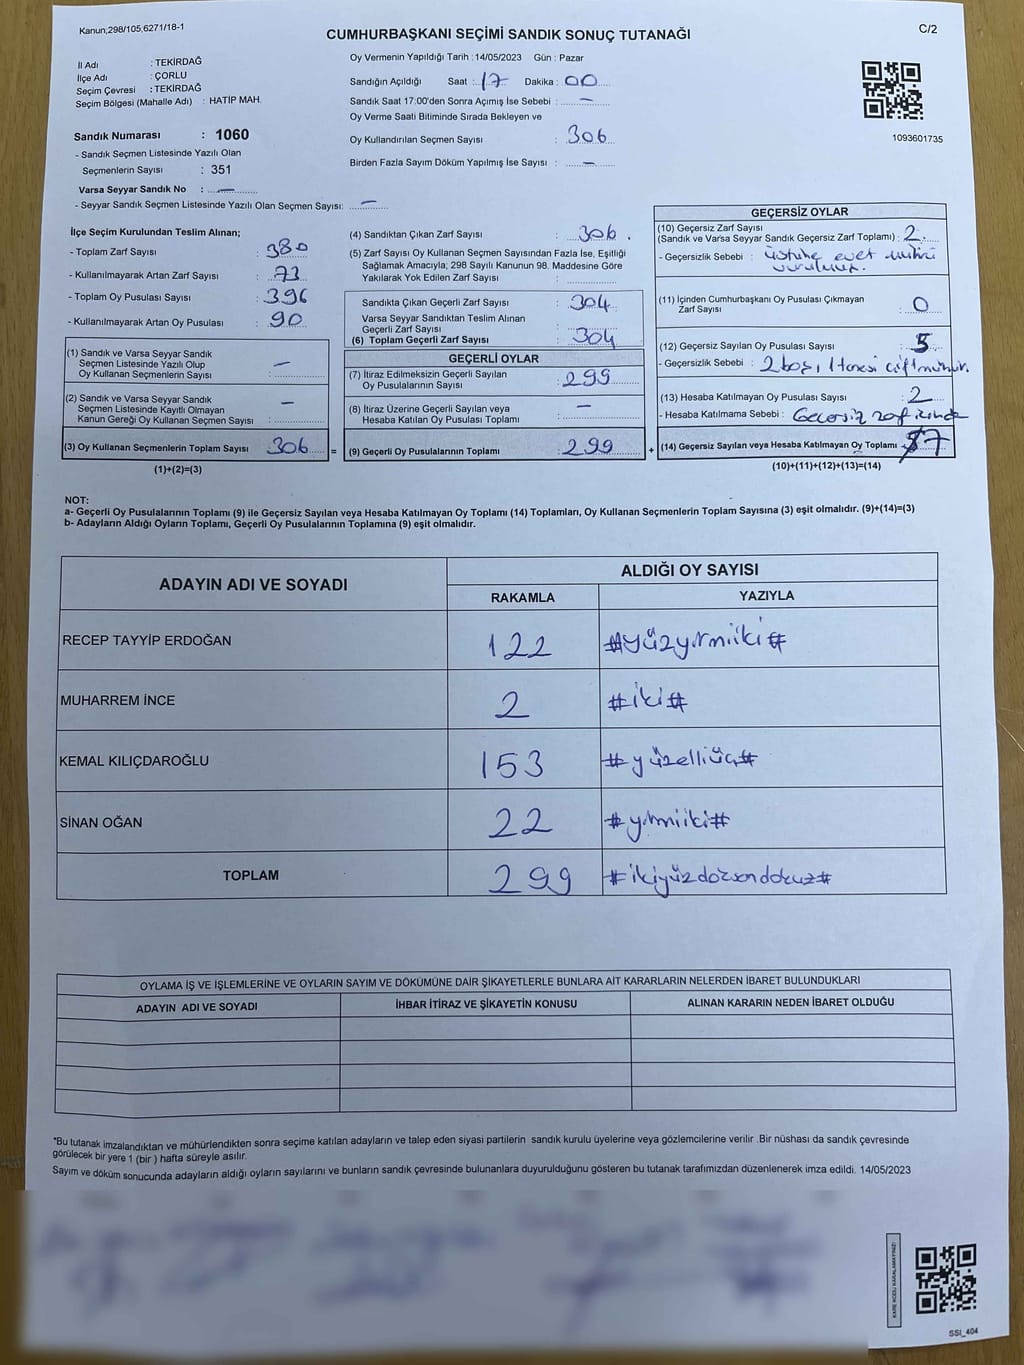 Kanun;298/105;6271/18-1
CUMHURBAŞKANI SEÇİMİ SANDIK SONUÇ TUTANAĞI
C/2
İl Adı : TEKİRDAĞ
İlçe Adı : ÇORLU
Seçim Çevresi : TEKİRDAĞ
Seçim Bölgesi (Mahalle Adı) : HATİP MAH.
Sandık Numarası : 1060
- Sandık Seçmen Listesinde Yazılı Olan
Seçmenlerin Sayısı : 351
Varsa Seyyar Sandık No : —
- Seyyar Sandık Seçmen Listesinde Yazılı Olan Seçmen Sayısı: —
Oy Vermenin Yapıldığı Tarih : 14/05/2023 Gün : Pazar
Sandığın Açıldığı Saat : 17 Dakika : 00
Sandık Saat 17:00'den Sonra Açımış İse Sebebi : —
Oy Verme Saati Bitiminde Sırada Bekleyen ve
Oy Kullandırılan Seçmen Sayısı : 306
Birden Fazla Sayım Döküm Yapılmış İse Sayısı : —
1093601735
İlçe Seçim Kurulundan Teslim Alınan;
- Toplam Zarf Sayısı : 380
- Kullanılmayarak Artan Zarf Sayısı : 73
- Toplam Oy Pusulası Sayısı : 396
- Kullanılmayarak Artan Oy Pusulası : 90
(1) Sandık ve Varsa Seyyar Sandık
Seçmen Listesinde Yazılı Olup
Oy Kullanan Seçmenlerin Sayısı : —
(2) Sandık ve Varsa Seyyar Sandık
Seçmen Listesinde Kayıtlı Olmayan
Kanun Gereği Oy Kullanan Seçmen Sayısı : —
(3) Oy Kullanan Seçmenlerin Toplam Sayısı : 306 =
(1)+(2)=(3)
(4) Sandıktan Çıkan Zarf Sayısı : 306
(5) Zarf Sayısı Oy Kullanan Seçmen Sayısından Fazla İse, Eşitliği
Sağlamak Amacıyla; 298 Sayılı Kanunun 98. Maddesine Göre
Yakılarak Yok Edilen Zarf Sayısı :
Sandıkta Çıkan Geçerli Zarf Sayısı : 304
Varsa Seyyar Sandıktan Teslim Alınan
Geçerli Zarf Sayısı :
(6) Toplam Geçerli Zarf Sayısı : 304
GEÇERLİ OYLAR
(7) İtiraz Edilmeksizin Geçerli Sayılan
Oy Pusulalarının Sayısı : 299
(8) İtiraz Üzerine Geçerli Sayılan veya
Hesaba Katılan Oy Pusulası Toplamı : —
(9) Geçerli Oy Pusulalarının Toplamı : 299 +
GEÇERSİZ OYLAR
(10) Geçersiz Zarf Sayısı
(Sandık ve Varsa Seyyar Sandık Geçersiz Zarf Toplamı) : 2
- Geçersizlik Sebebi : üstüne evet mührü
vurulmuş.
(11) İçinden Cumhurbaşkanı Oy Pusulası Çıkmayan
Zarf Sayısı : 0
(12) Geçersiz Sayılan Oy Pusulası Sayısı : 5
- Geçersizlik Sebebi : 2 boş, 1 tanesi çift mühür
(13) Hesaba Katılmayan Oy Pusulası Sayısı : 2
- Hesaba Katılmama Sebebi : Geçersiz zarf içinde
(14) Geçersiz Sayılan veya Hesaba Katılmayan Oy Toplamı 7
(10)+(11)+(12)+(13)=(14)
NOT:
a- Geçerli Oy Pusulalarının Toplamı (9) ile Geçersiz Sayılan veya Hesaba Katılmayan Oy Toplamı (14) Toplamları, Oy Kullanan Seçmenlerin Toplam Sayısına (3) eşit olmalıdır. (9)+(14)=(3)
b- Adayların Aldığı Oyların Toplamı, Geçerli Oy Pusulalarının Toplamına (9) eşit olmalıdır.
ADAYIN ADI VE SOYADI
ALDIĞI OY SAYISI
RAKAMLA YAZIYLA
RECEP TAYYİP ERDOĞAN 122 #yüzyirmiiki#
MUHARREM İNCE 2 #iki#
KEMAL KILIÇDAROĞLU 153 #yüzelliüç#
SİNAN OĞAN 22 #yirmiiki#
TOPLAM 299 #ikiyüzdoksandokuz#
OYLAMA İŞ VE İŞLEMLERİNE VE OYLARIN SAYIM VE DÖKÜMÜNE DAİR ŞİKAYETLERLE BUNLARA AİT KARARLARIN NELERDEN İBARET BULUNDUKLARI
ADAYIN ADI VE SOYADI İHBAR İTİRAZ VE ŞİKAYETİN KONUSU ALINAN KARARIN NEDEN İBARET OLDUĞU
*Bu tutanak imzalandıktan ve mühürlendikten sonra seçime katılan adayların ve talep eden siyasi partilerin sandık kurulu üyelerine veya gözlemcilerine verilir .Bir nüshası da sandık çevresinde
görülecek bir yere 1 (bir ) hafta süreyle asılır.
Sayım ve döküm sonucunda adayların aldığı oyların sayılarını ve bunların sandık çevresinde bulunanlara duyurulduğunu gösteren bu tutanak tarafımızdan düzenlenerek imza edildi. 14/05/2023
KARE KODU KARALAMAYINIZ!
SSI_404